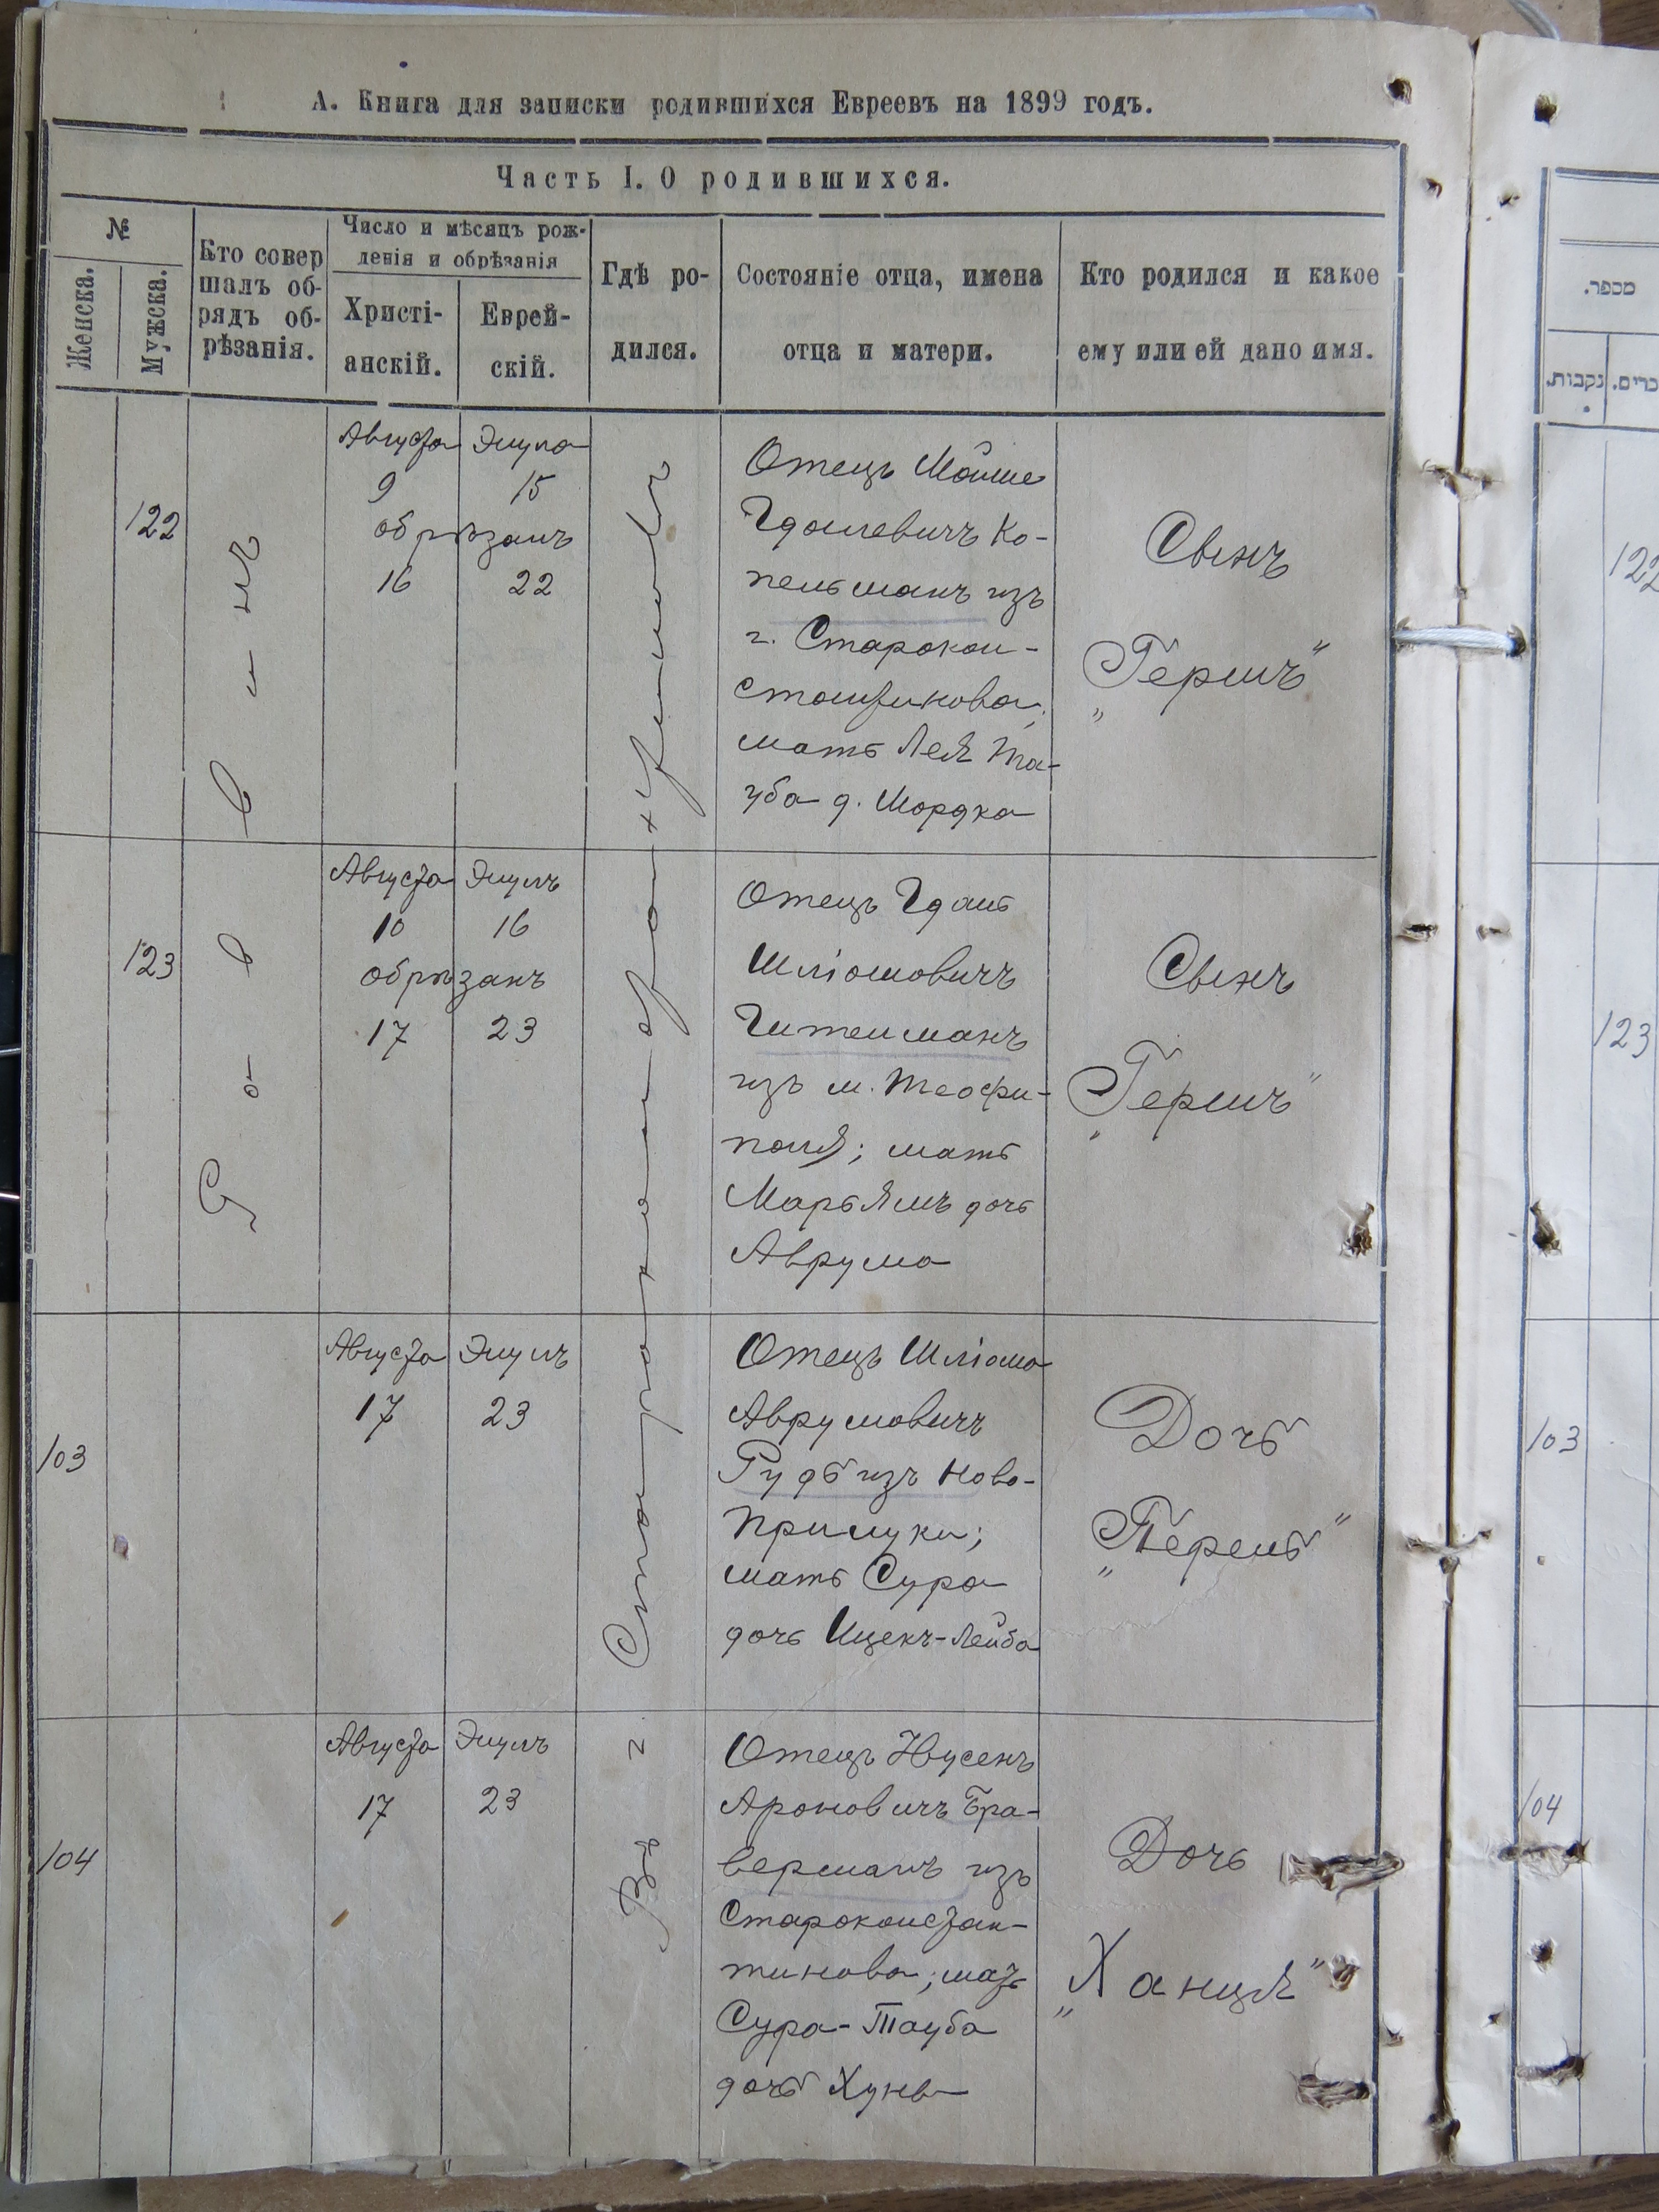 А. Книга для записки родившихся Евреевъ на 1899 годъ.
Часть I. О родившихся.
№
Женска.
Мужска.
Кто совер
шалъ об-
рядъ об-
рѣзанія.
Число и мѣсяцъ рож-
денія и обрѣзанія
Христі-
анскій.
Еврей-
скій.
Гдѣ ро-
дился.
Состояніе отца, имена
отца и матери.
Кто родился и какое
ему или ей дано имя.
122
Августа Элула
9 15
обрѣзанъ
16 22
Отецъ Мойше
Гдалевичъ Ко-
пельманъ изъ
г. Старокон-
стантинова,
мать Лея Та-
уба д. Мордка
Сынъ
„Гершъ"
123
Августа Элулъ
10 16
обрѣзанъ
17 23
Отецъ Гдаль
Шліомовичъ
изъ м. Теофи-
поля; мать
Марьямъ дочь
Аврума
Сынъ
„Гершъ"
103
Августа Элулъ
17 23
Отецъ Шліома
Аврумовичъ
изъ Ново-
Прилуки;
мать Сура
дочь Ицекъ-Лейба
Дочь
„Перель"
104
Августа Элулъ
17 23
Отецъ Нусенъ
Ароновичъ Бра-
верманъ изъ
Староконстан-
тинова; мать
Сура-Тауба
дочь Хуны
Дочь
„Ханця"
Въ г. Староконстантиновѣ
מספר.
נקבות.
זכרים.
122
123
103
104